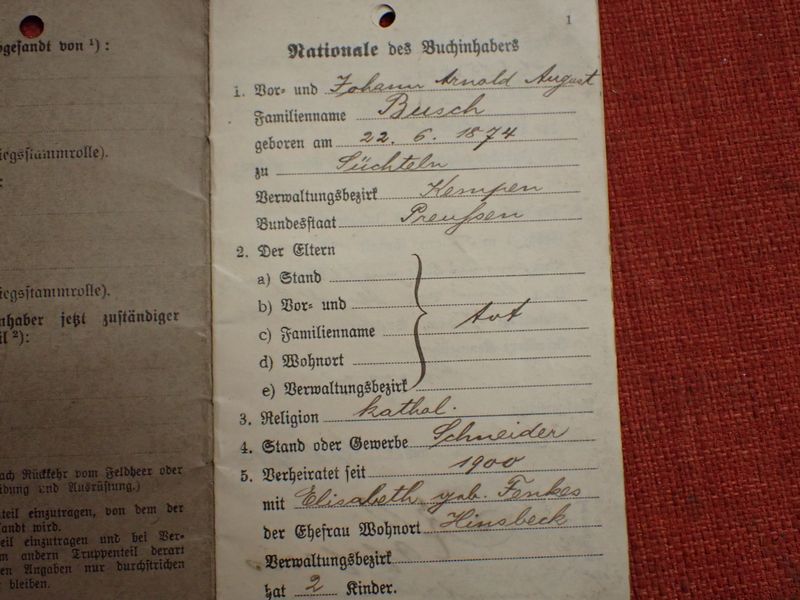 gesandt von ¹):
iegsstammrolle).
iegsstammrolle).
nhaber jetzt zuständiger
il ²):
ach Rückkehr vom Feldheer oder
idung und Ausrüstung.)
nteil einzutragen, von dem der
sandt wird.
eil einzutragen und bei Ver-
m andern Truppenteil derart
en Angaben nur durchstrichen
bleiben.
1
Nationale des Buchinhabers
1. Vor- und Johann Arnold August
Familienname Busch
geboren am 22. 6. 1874
zu Süchteln
Verwaltungsbezirk Kempen
Bundesstaat Preußen
2. Der Eltern
a) Stand
b) Vor- und
c) Familienname tot
d) Wohnort
e) Verwaltungsbezirk
3. Religion kathol.
4. Stand oder Gewerbe Schneider
5. Verheiratet seit 1900
mit Elisabeth geb. Fenkes
der Ehefrau Wohnort Hinsbeck
Verwaltungsbezirk
hat 2 Kinder.